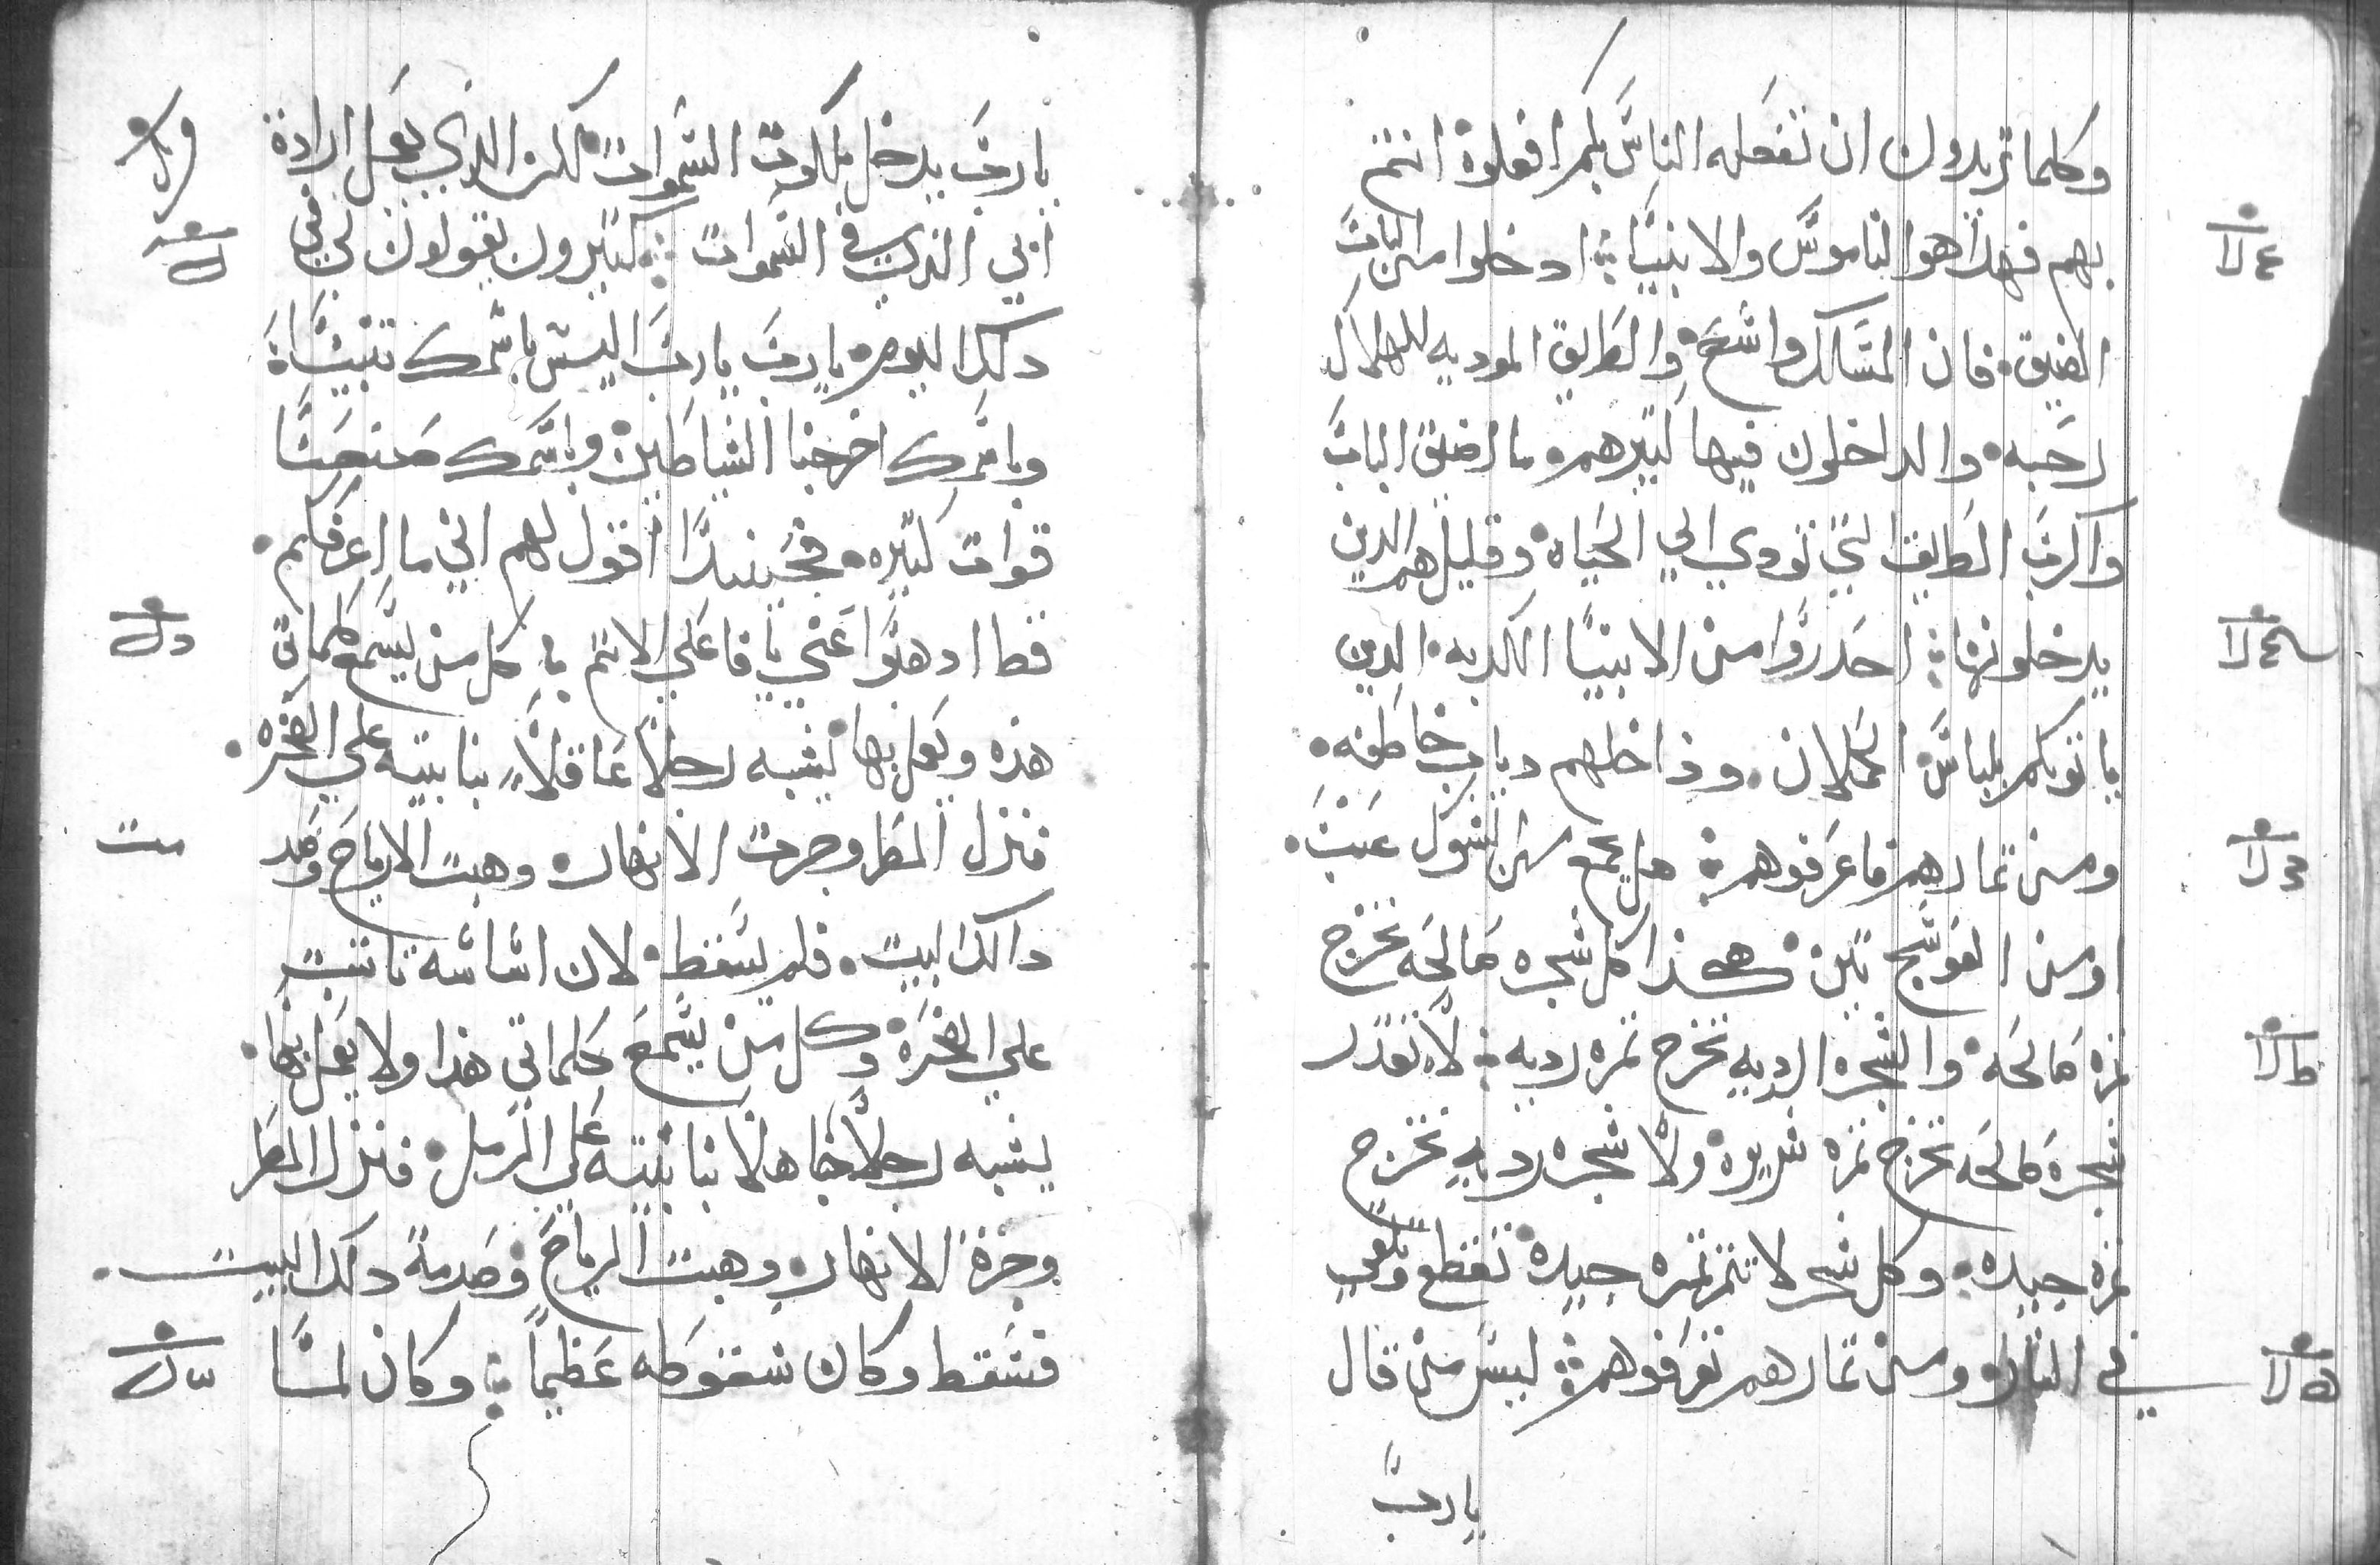 وكلما تريدون ان تفعله الناس بكم افعلوه انتم
بهم فهذا هوا الناموس والانبيا ادخلوا من الباب
الضيق فان المسلك واسع والطريق الموديه للهلاك
رحبه والداخلون فيها كتيرهم ما اضيق الباب
واكرب الطريق التي تودي الي الحياه وقليل هم الدين
يدخلونها احدروا من الانبيا الكدبه الدين
ياتوبكم بلباس الحملان وداخلهم دياب خاطفه
ومن تمارهم فاعرفوهم هل يجمع من الشوك عنب
او من العوسج تين هكذا كل شجره صالحه تخرج
تمره صالحه والشجره الرديه تخرج تمره رديه لا تقدر
شجره صالحه تخرج تمره شريره ولا شجره رديه تخرج
تمره جيده وكل شجره لا تتمر تمره جيده تقطع وتلقي
في النار ومن تمارهم تعرفوهم ليس من قال
يارب
يارب يدخل ملكوت السموات لكن الدي يعمل ارادة
ابي الدي في السموات كتيرون يقولون لي في
دلك اليوم يارب يارب اليس باسمك تنبيناة
وباسمك اخرجنا الشياطين وباسمك صنعنا
قوات كتيره فحينيدا اقول لهم اني ما اعرفكم
قط ادهبوا عني يا فاعلي الاتم كل من يسمع كلماتي
هذه ويعمل بها يشبه رجلا عاقلا بنا بيته علي الصخره
فنزل المطر وجرت الانهار وهبت الارياح وصد
دالك البيت فلم يسقط لان اساسه تابت
علي الصخره وكل من يسمع كلماتي هذا ولا يعمل بها
يشبه رجلا جاهلا بنا بيته علي الرمل فنزل المطر
وجرة الانهار وهبت الرياح وصدمة دلك البيت
فسقط وكان سقوطه عظيما وكان لما